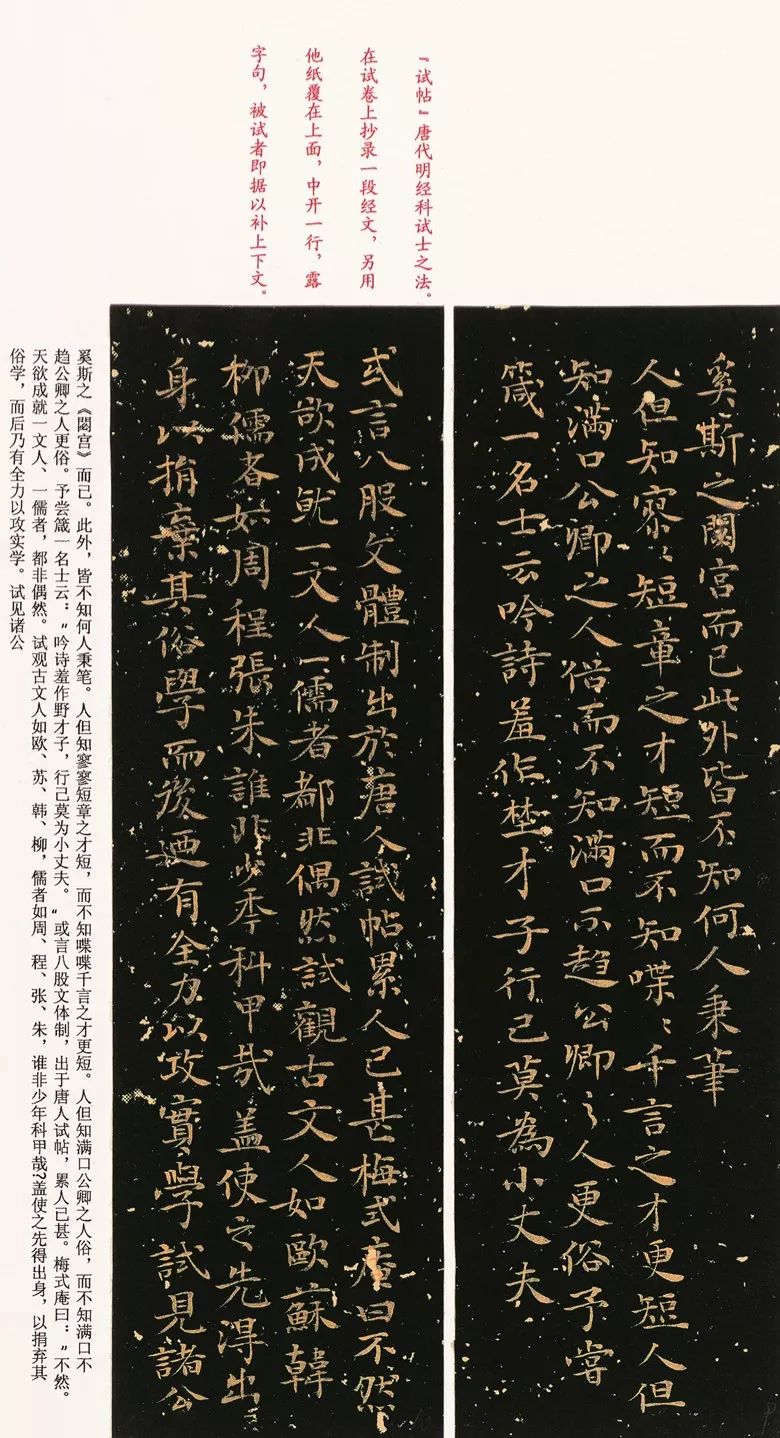 『试帖』唐代明经科试士之法。
在试卷上抄录一段经文，另用
他纸覆在上面，中开一行，露
字句，被试者即据以补上下文。
奚斯之閟宫而已此外皆不知何人秉筆
人但知寥〻短章之才短而不知喋〻千言之才更短人但
知满口公卿之人俗而不知满口不趋公卿之人更俗予嘗
箴一名士云吟詩羞作埜才子行己莫為小丈夫
或言八股文體制出於唐人試帖累人已甚梅式庵曰不然
天欲成就一文人一儒者都非偶然試觀古文人如歐蘇韓
柳儒者如周程張朱誰非少年科甲哉盖使之先得出
身以捐棄其俗學而後廼有全力以攻實學試見諸公
奚斯之《閟宫》而已。此外，皆不知何人秉笔。人但知寥寥短章之才短，而不知喋喋千言之才更短。人但知满口公卿之人俗，而不知满口不
趋公卿之人更俗。予尝箴一名士云：“吟诗羞作野才子，行己莫为小丈夫。”或言八股文体制，出于唐人试帖，累人已甚。梅式庵曰：“不然。
天欲成就一文人、一儒者，都非偶然。试观古文人如欧、苏、韩、柳，儒者如周、程、张、朱，谁非少年科甲哉?盖使之先得出身，以捐弃其
俗学，而后乃有全力以攻实学。试见诸公